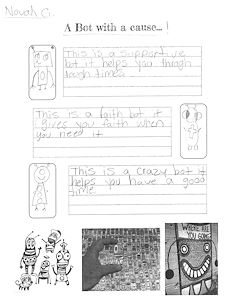 Novah G.
A Bot with a cause...!
This is a supportive
bot it helps you through
tough times.
This is a faith bot it
gives you faith when
you need it
This is a crazy bot it
helps you have a good
time.
WHERE ARE
YOU GOING